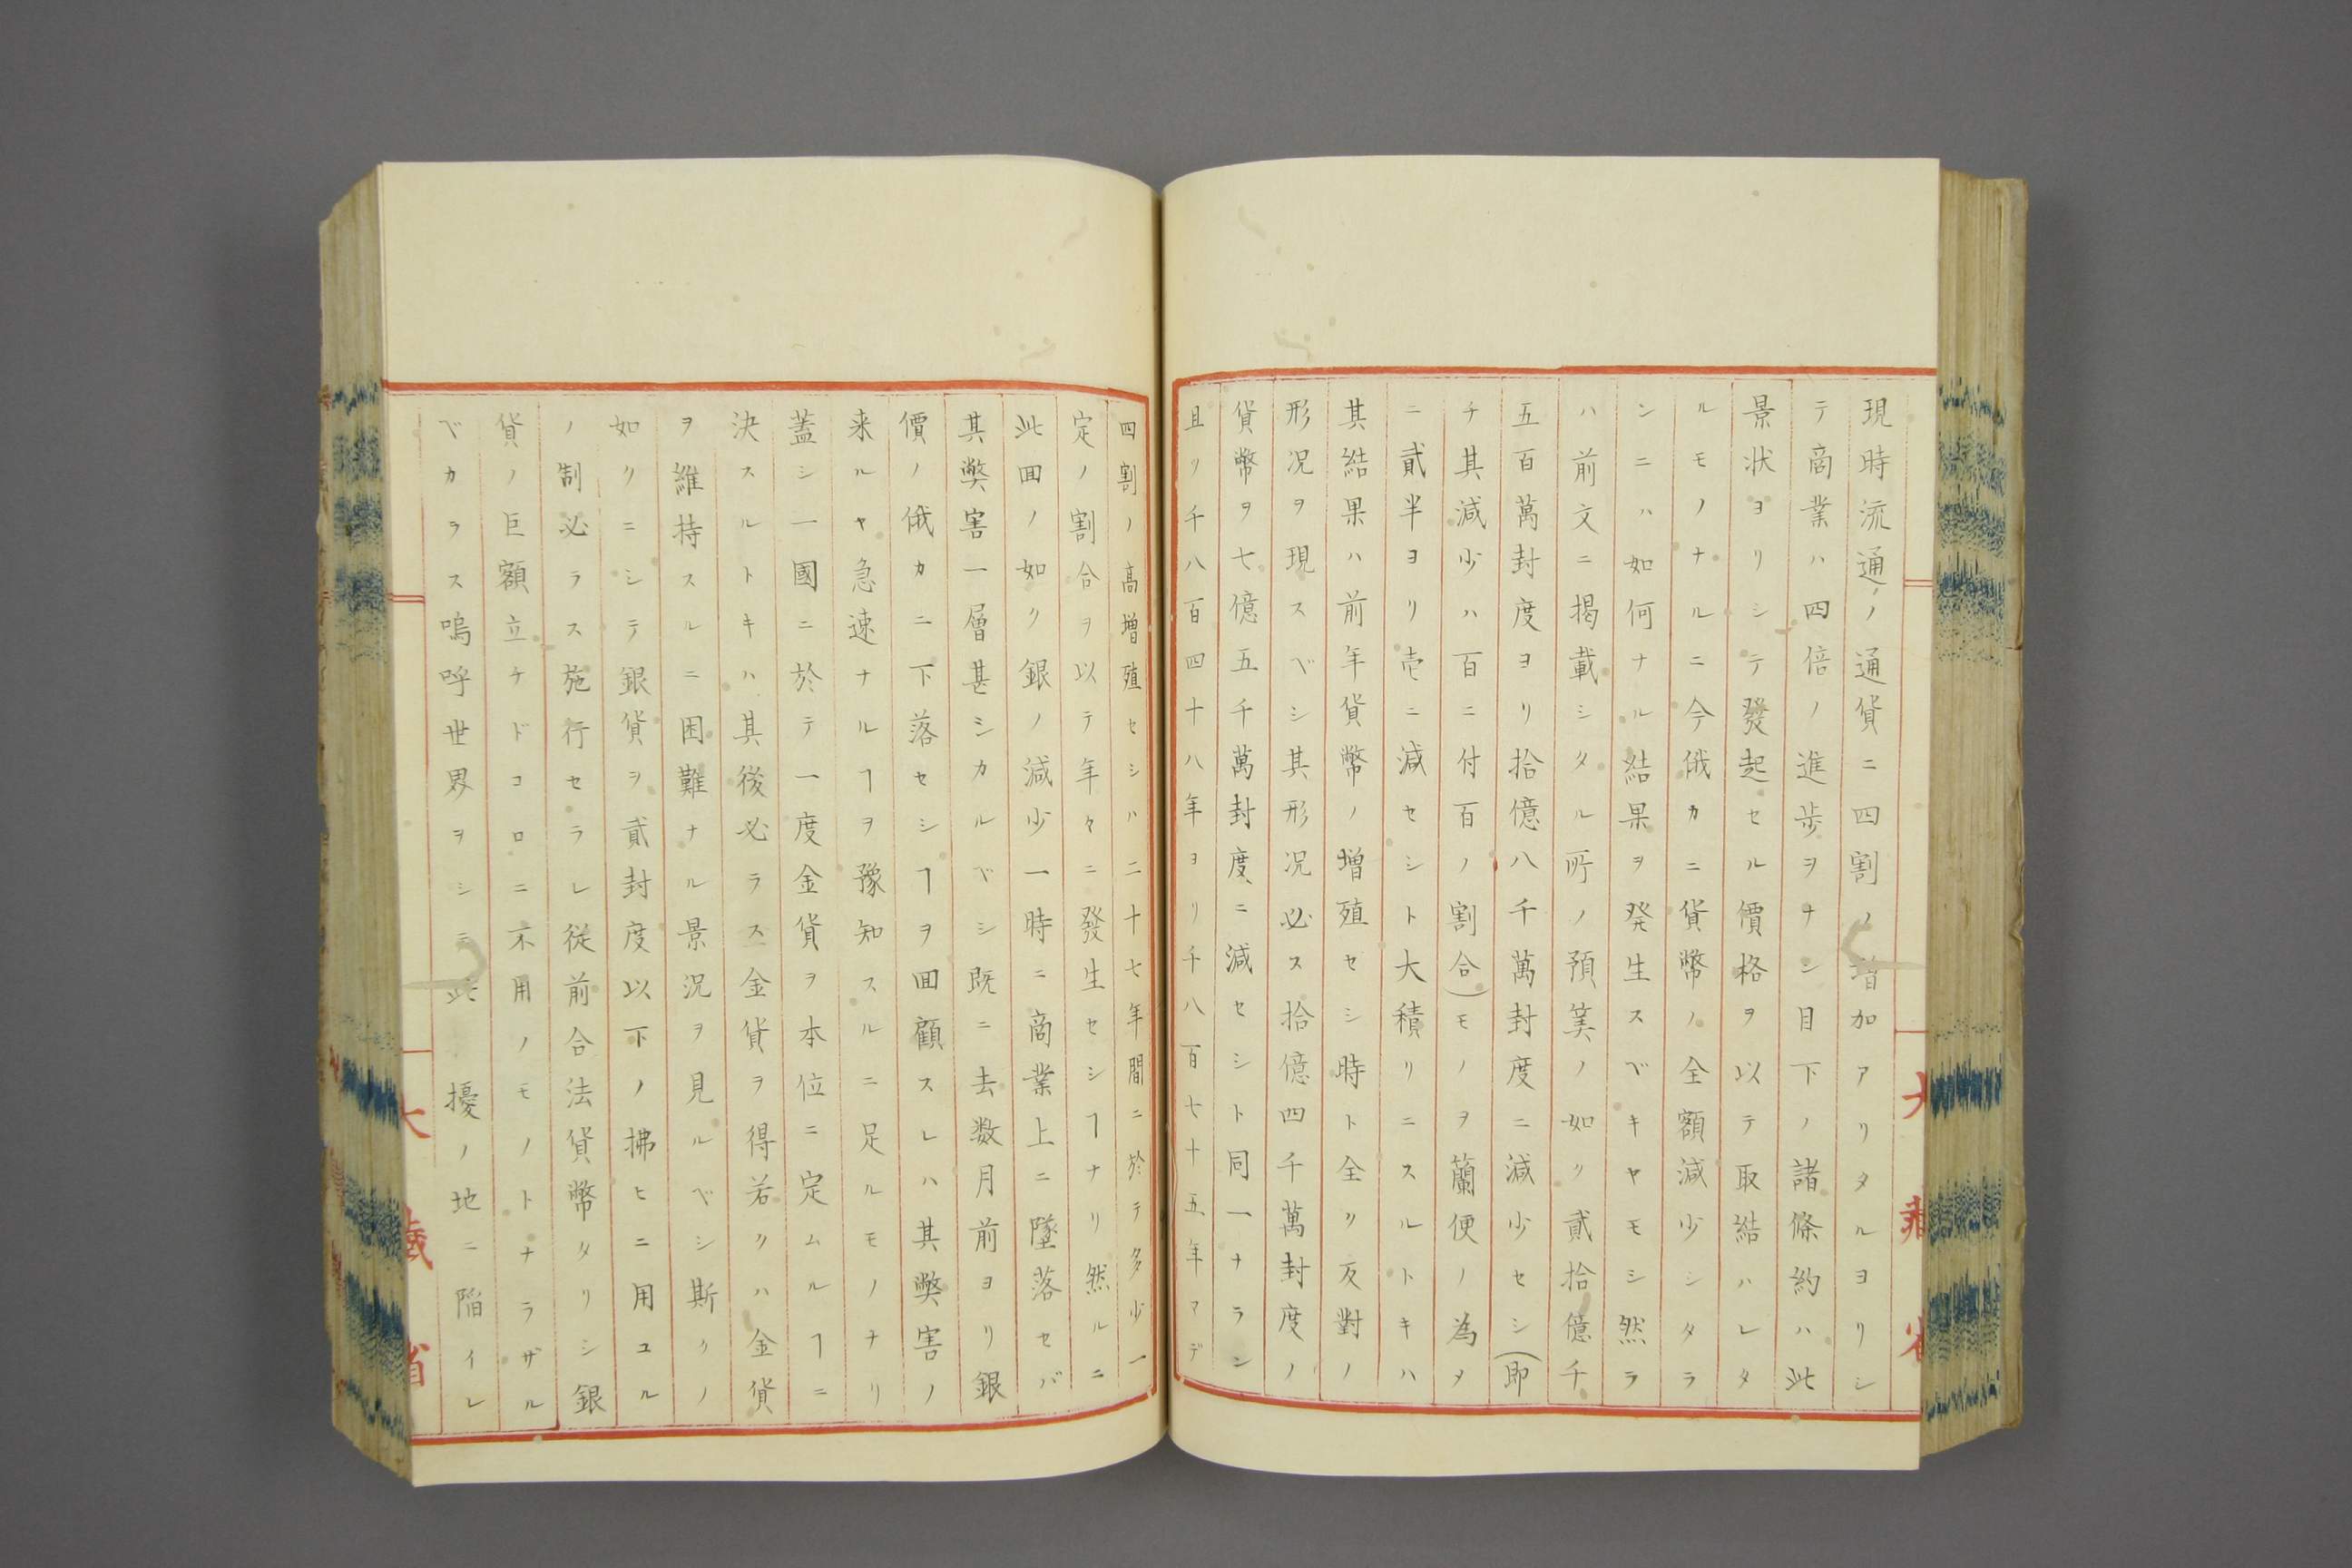 現時流通ノ通貨ニ四割ノ増加アリタルヨリシ
テ商業ハ四倍ノ進歩ヲナシ目下ノ諸條約ハ此
景状ヨリシテ發起セル價格ヲ以テ取結ハレタ
ルモノナルニ今俄カニ貨幣ノ全額減少シタラ
ンニハ如何ナル結果ヲ発生スベキヤモシ然ラ
ハ前文ニ掲載シタル所ノ預筭ノ如ク貳拾億千
五百萬封度ヨリ拾億八千萬封度ニ減少セシ(即
チ其減少ハ百ニ付百ノ割合)モノヲ蘭便ノ為メ
ニ貳半ヨリ壱ニ減セシト大積リニスルトキハ
其結果ハ前年貨幣ノ増殖セシ時ト全ク反對ノ
形况ヲ現スベシ其形况必ス拾億四千萬封度ノ
貨幣ヲ七億五千萬封度ニ減セシト同一ナラン
且ツ千八百四十八年ヨリ千八百七十五年マデ
四割ノ高増殖セシハ二十七年間ニ於テ多少一
定ノ割合ヲ以テ年々ニ發生セシヿナリ然ルニ
此回ノ如ク銀ノ減少一時ニ商業上ニ墜落セバ
其弊害一層甚シカルベシ既ニ去数月前ヨリ銀
價ノ俄カニ下落セシヿヲ回顧スレハ其弊害ノ
来ルヤ急速ナルヿヲ豫知スルニ足ルモノナリ
蓋シ一國ニ於テ一度金貨ヲ本位ニ定ムルヿニ
決スルトキハ其後必ラス金貨ヲ得若クハ金貨
ヲ維持スルニ困難ナル景况ヲ見ルベシ斯クノ
如クニシテ銀貨ヲ貳封度以下ノ拂ヒニ用ユル
ノ制必ラス施行セラレ従前合法貨幣タリシ銀
貨ノ巨額立チドコロニ不用ノモノトナラザル
ベカラス嗚呼世界ヲシテ此擾ノ地ニ陥イレ
大藏省
大藏省